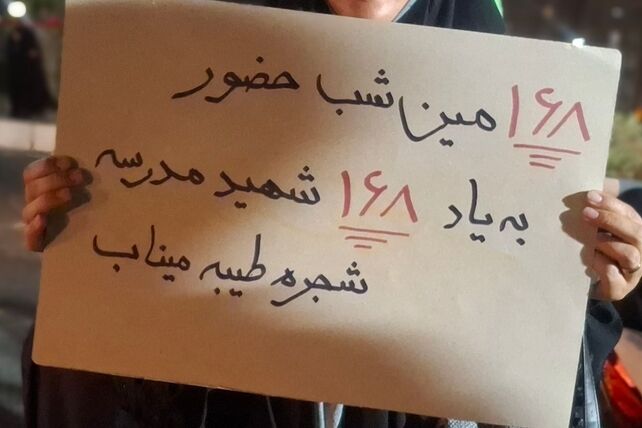 ۱۶۸ مین شب حضور
به یاد ۱۶۸ شهید مدرسه
شجره طیبه میناب